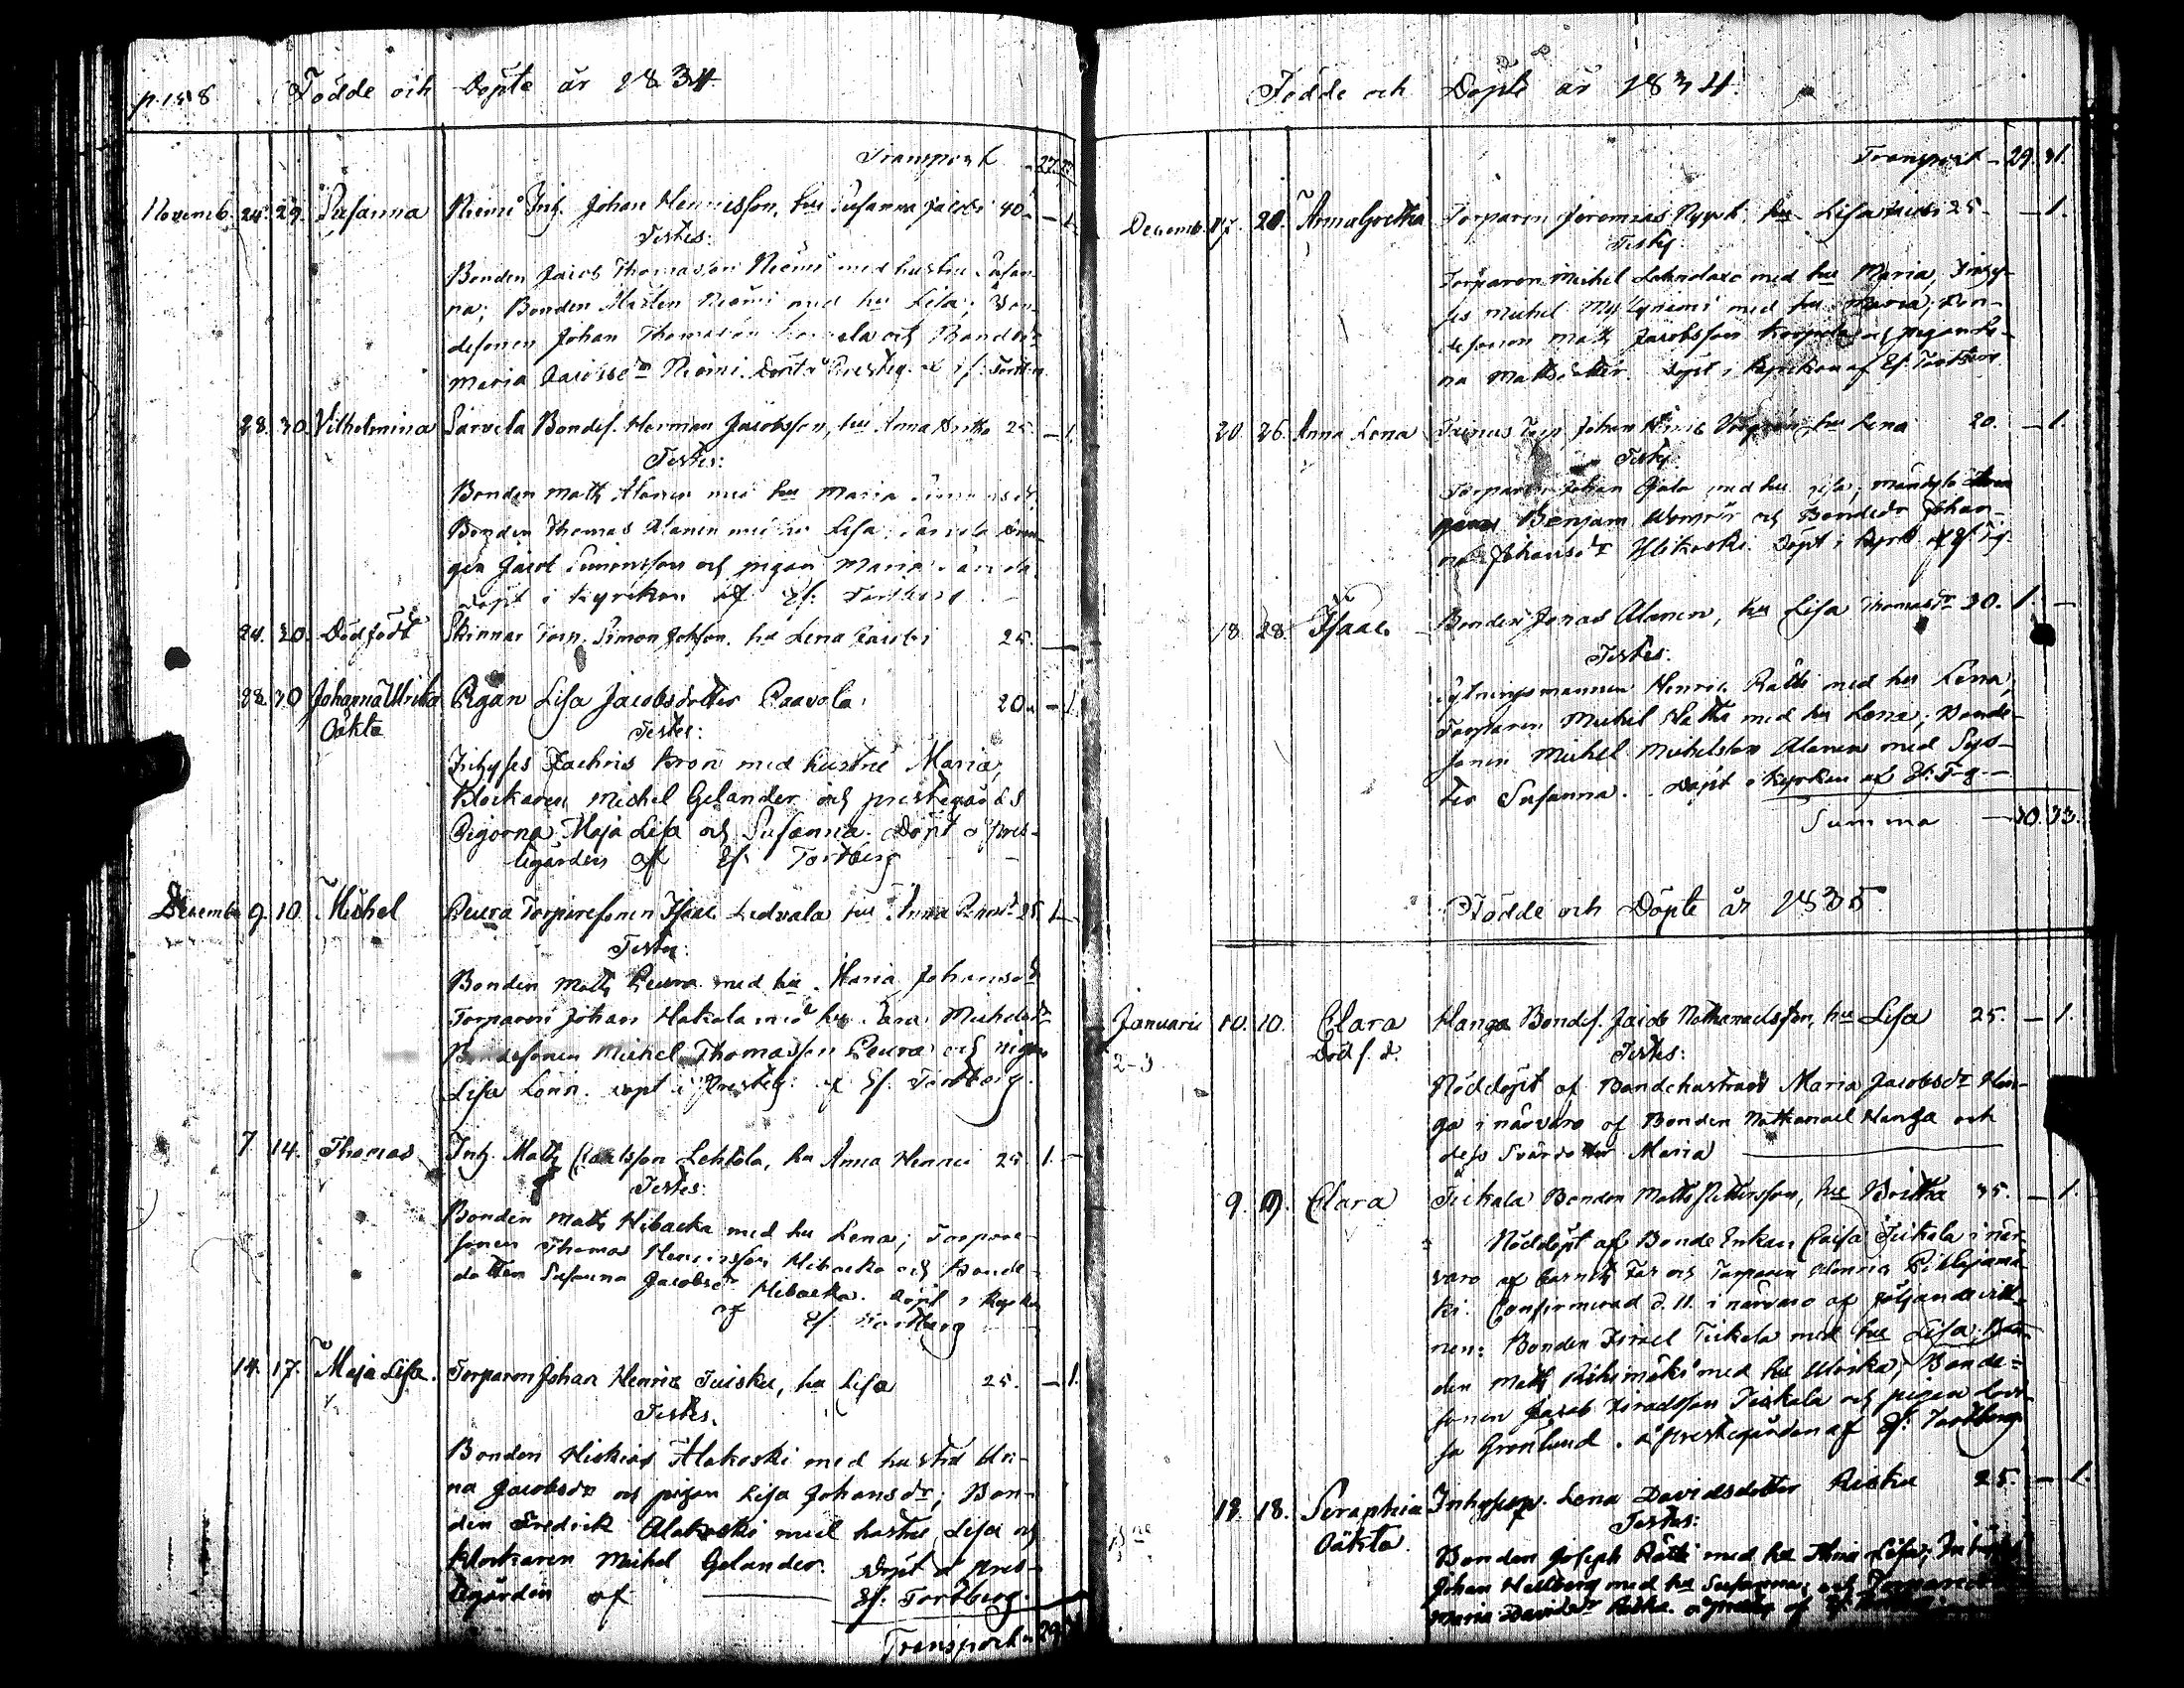 p. 158 Födde och Döpte år 1834
Transport - 27.
Novemb. 24. 29. Susanna Niemi Inh. Johan Henricsson, hu Susanna Jacobs 40. - 1.
Testes:
Bonden Jacob Thomasson Niemi med hustru Susan-
na; Bonden Niemi med hu Lisa; Bon-
desonen Johan Thomasson och Bondedr
Maria Jacobsdr Niemi. Döpt
28. 30. Vilhelmina Särvela Bondes. Herman Jacobsson, hu Anna 25 - 1.
Testes:
Bonden Matts Alanen med hu Maria
Bonden Thomas Alanen med hu Lisa; Särvela Drän-
gen Jacob Simonsson och pigan Maria Särvela
Döpt i kyrkan af Ef. Tortberg
24. 30. Dödfödt Skinnar Torp. Simon Johsson. hu Lena 25. -
28. 30 Johanna Ulrika Pigan Lisa Jacobsdotter Paavola 20. - 1.
Oäkta Testes:
Inhyses Zachris Kron med hustru Maria,
Klockaren Michel Gelander och prestegårds
Pigorna Maja Lisa och Susanna. Döpt i pres-
tegården af Ef. Tortberg
December 9. 10. Michel Peura Torparesonen Isaac Ledvala hu Anna 25. 1. -
Testes:
Bonden Matts Peura med hu Maria Johansdr
Torparen Johan Hakala med hu Michelsdr
Bondesonen Michel Thomasson Peura och pigan
Lisa Lönn. Döpt i Presteg. af Ef. Tortberg.
7 14. Thomas Inh. Matts Carlsson Lehtola, hu Anna Henrici 25 1. -
Testes:
Bonden Matts Hibacka med hu Lena; Torpare-
sonen Thomas Henricsson Hibacka och Bonde-
dottren Susanna Jacobsdr Hibacka. Döpt i kyrkan
af Ef. Tortberg
14. 17. Maja Lisa. Torparen Johan Henric Tuisku, hu Lisa 25. - 1.
Testes.
Bonden Hiskias Alakoski med hustru An-
na Jacobsdr och pigan Lisa Johansdr; Bon-
den Fredrik Alakoski med hustru Lisa och
Klockaren Michel Gelander. Döpt i pres-
tegården af Ef. Tortberg.
Transport - 29.
Födde och Döpte år 1834
Transport - 29. 31.
Decemb. 17. 20. Anna Greta Torparen Jeremias hu Lisa 25 - 1.
Testes:
Torparen Michel med hu Maria, Inhy-
ses Michel med hu Maria; Bon-
desonen Matts Jacobsson och pigan Le-
na Mattsdotter. Döpt i kyrkan af Ef. Tortberg
20. 26. Anna Lena Torp. Johan hu Lena 20. - 1.
Testes:
Torparen Johan Ojala med hu Lisa;
Benjam och Bondedr Johan-
na Johansdr Ylikoski. Döpt i kyrk. af Ef. T-g.
18. 28. Isaac. Bonden Jonas Alanen, hu Lisa Thomasdr 30. 1. -
Testes.
Sytningsmannen Henric Rätti med hu Lena,
Torparen Michel med hu Lena; Bonde-
sonen Michel Michelsson Alanen med Sys-
ter Susanna. Döpt i kyrkan af Ef. T-g. -
Summa - 30. 33.
Födde och Döpte år 1835
Januarii 10. 10. Clara Hanga Bondes. Jacob Nathanaelsson, hu Lisa 25. - 1.
2-3 Död s. d. Testes:
Nöddöpt af Bondehustrun Maria Jacobsdr Han-
ga i närvaro af Bonden Nathanael Hanga och
dess Svärdotter Maria
9. 9. Clara Tiikala Bonden Matts Pettersson, hu Britha 35. - 1.
Nöddöpt af Bonde Enkan Caisa Tiikala i när-
varo af barnets Far och Torparen Henric
Confirmerad d. 11. i närvaro af följande vitt-
nen: Bonden Israel Tiikala med hu Lisa; Bon-
den Matts Riihimäki med hu Ulrika; Bonde-
sonen Jacob Israelsson Tiikala och pigan Lovi-
sa Grönlund. i prestegården af Ef. Tortberg
13. 18. Seraphia Inhysesp. Lena Davidsdotter Riska 25. - 1.
Oäkta. Testes:
Bonden Joseph Rätti med hu Anna Lisa;
Johan Hellberg med hu Susanna; och
Maria Davidsdr Riska.